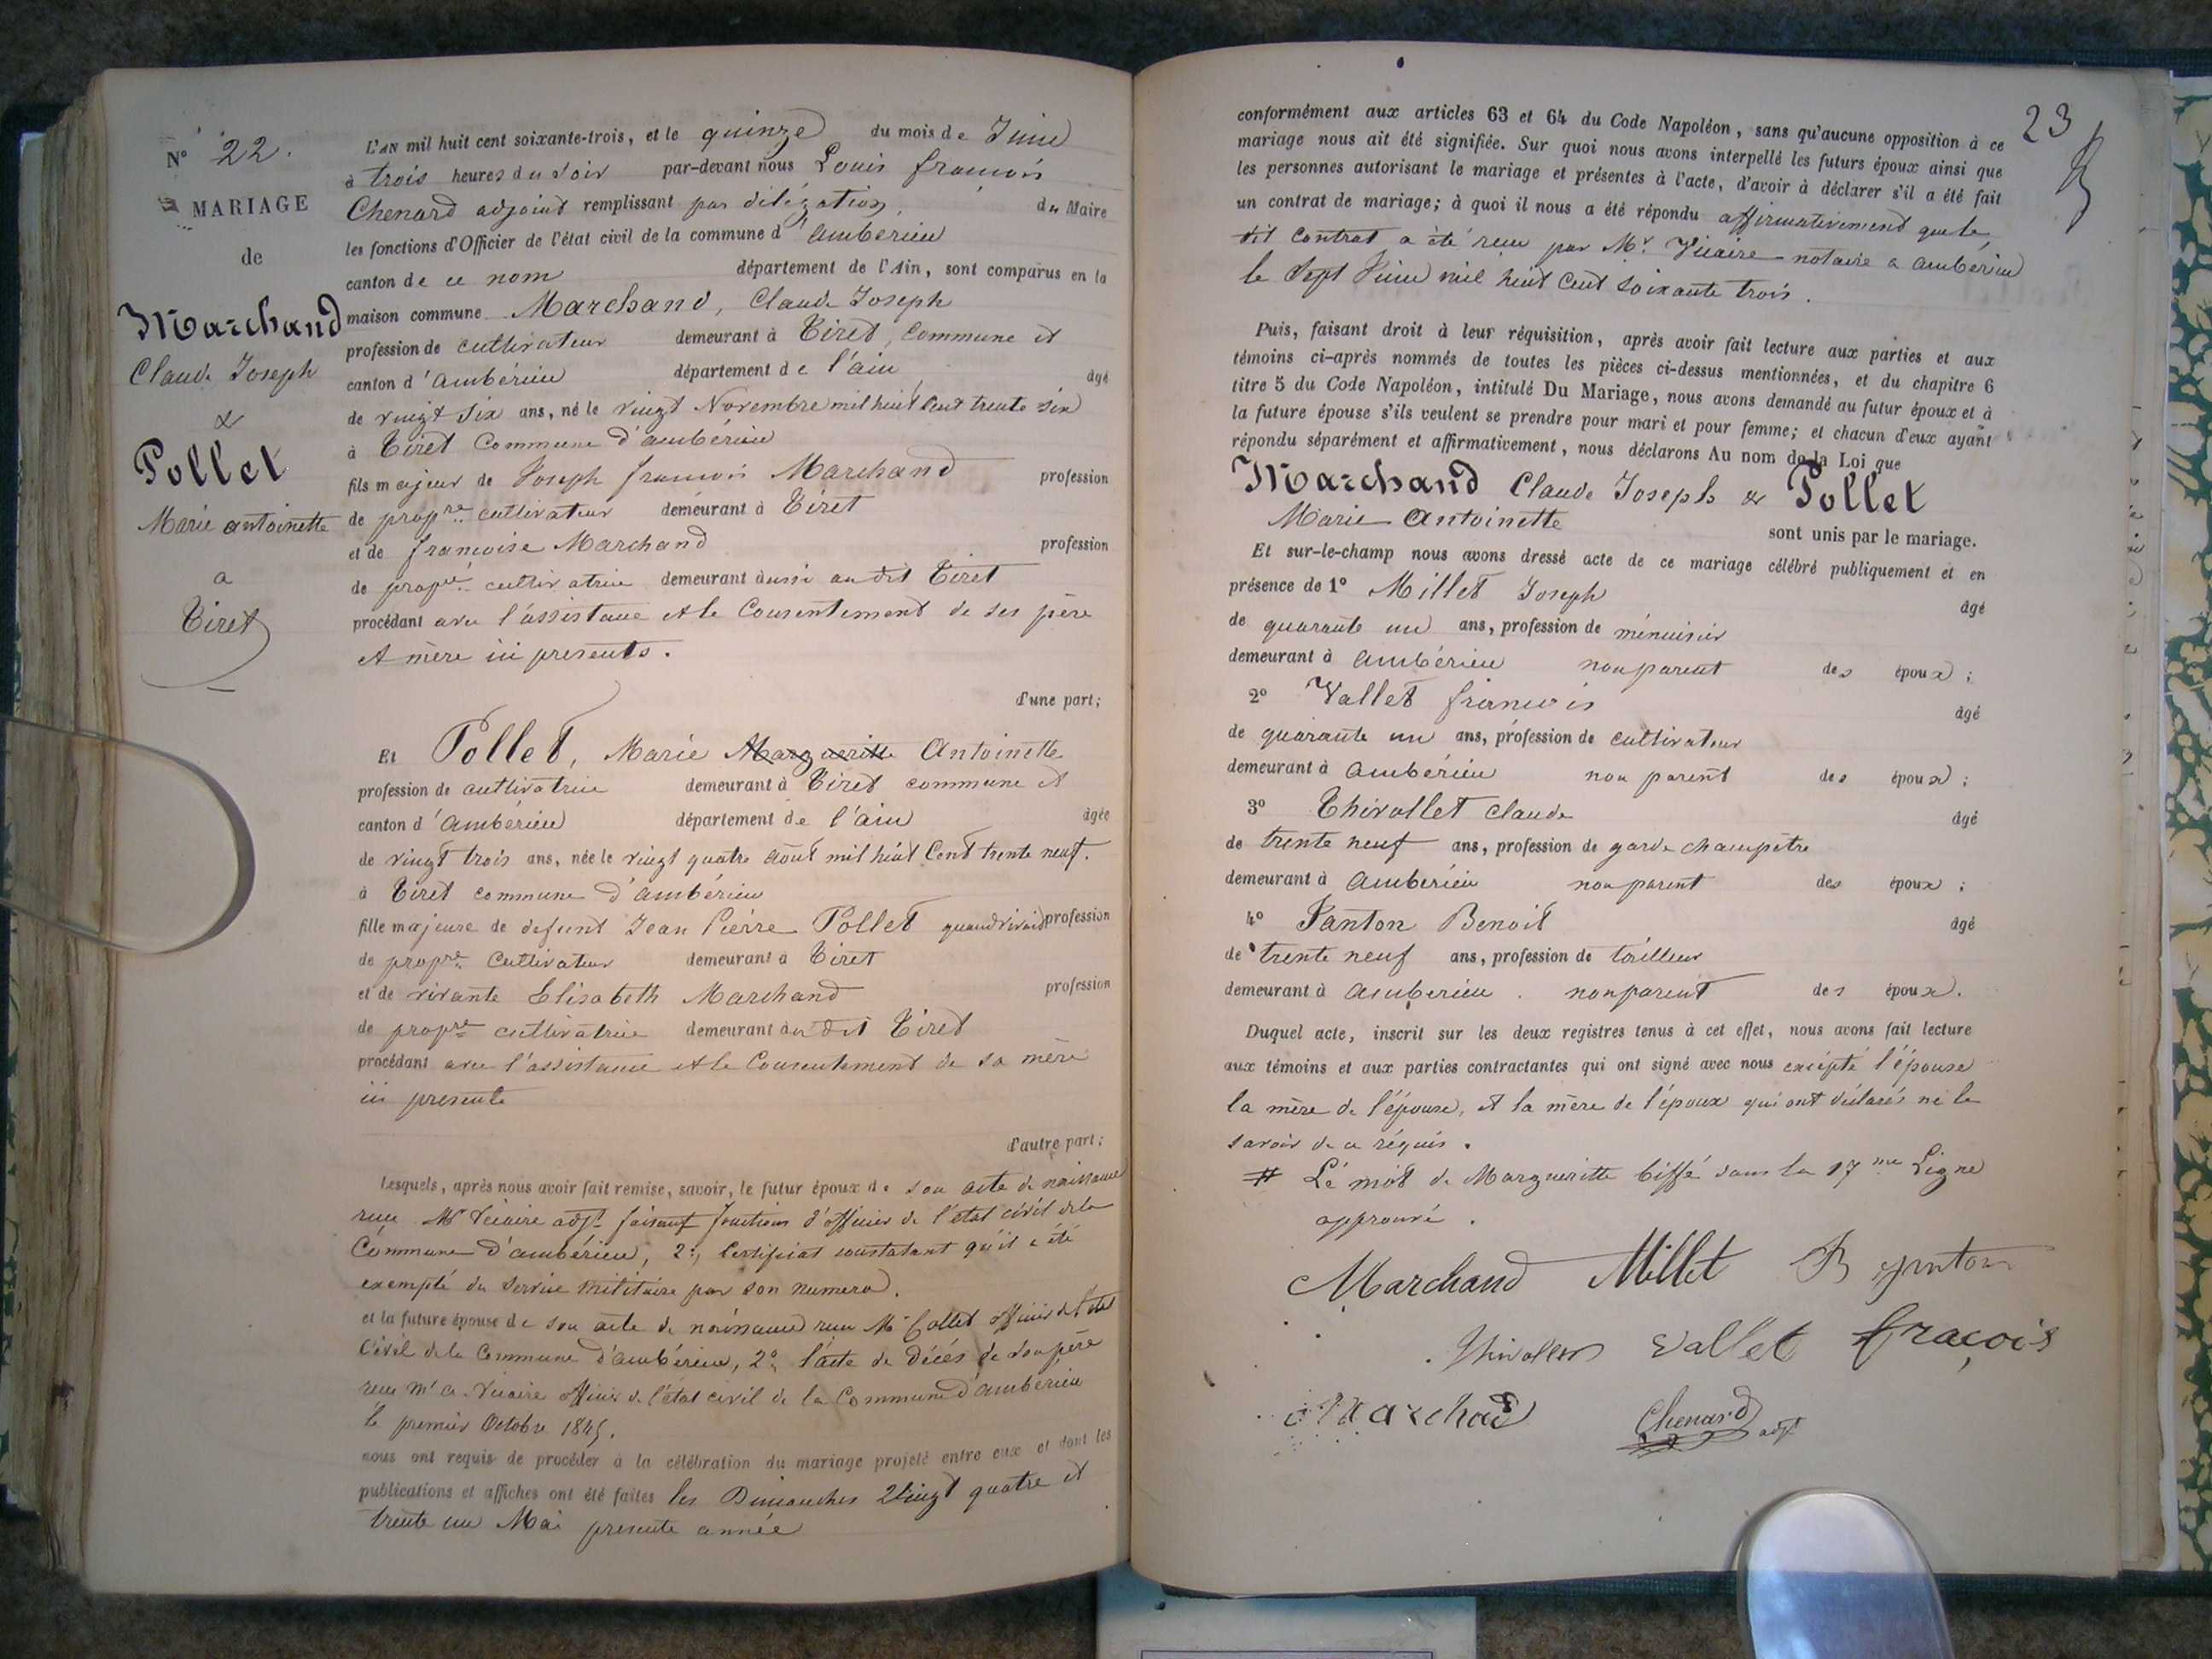 N° 22.
MARIAGE
de
Marchand
Claude Joseph
&
Pollet
Marie antoinette
a
Tiret
L'AN mil huit cent soixante-trois, et le quinze du mois de Juin
à trois heures du soir par-devant nous Louis françois
Chenard adjoint remplissant par délégation, du Maire
les fonctions d'Officier de l'état civil de la commune d'ambérieu
canton de ce nom département de l'Ain, sont comparus en la
maison commune Marchand, Claude Joseph
profession de cultivateur demeurant à Tiret, commune et
canton d'ambérieu département de l'ain âgé
de vingt six ans, né le vingt Novembre mil huit cent trente six
à Tiret Commune d'ambérieu
fils majeur de Joseph françois Marchand profession
de propre cultivateur demeurant à Tiret
et de françoise Marchand profession
de propre cultivatrice demeurant aussi au dit Tiret
procédant avec l'assistance et le Consentement de ses père
et mère ici presents.
d'une part;
Et Pollet, Marie Margueritte Antoinette
profession de cultivatrice demeurant à Tiret commune et
canton d'ambérieu département de l'ain âgée
de vingt trois ans, née le vingt quatre août mil huit Cent trente neuf.
à Tiret commune d'ambérieu
fille majeure de defunt Jean Pierre Pollet quand vivait profession
de propre Cultivateur demeurant à Tiret
et de vivante Elisabeth Marchand profession
de propre cultivatrice demeurant au dit Tiret
procédant avec l'assistance et le Consentement de sa mère
ici presente
d'autre part;
Lesquels, après nous avoir fait remise, savoir, le futur époux de son acte de naissance
reçu Mr Vicaire adjt faisant fonctions d'officier de l'état civil de la
Commune d'ambérieu, 2° Certificat constatant qu'il a été
exempté du service militaire par son numero.
et la future épouse de son acte de naissance reçu Mr Collet officier de l'état
Civil de la Commune d'ambérieu, 2° l'acte de décés de son père
reçu Mr a. Vicaire officier de l'état civil de la Commune d'ambérieu
le premier Octobre 1845.
nous ont requis de procéder à la célébration du mariage projeté entre eux et dont les
publications et affiches ont été faites les Dimanches Vingt quatre et
trente un Mai presente année
23
conformément aux articles 63 et 64 du Code Napoléon, sans qu'aucune opposition à ce
mariage nous ait été signifiée. Sur quoi nous avons interpellé les futurs époux ainsi que
les personnes autorisant le mariage et présentes à l'acte, d'avoir à déclarer s'il a été fait
un contrat de mariage; à quoi il nous a été répondu affirmativement que le
dit contrat a été reçu par Mr. Vicaire notaire a ambérieu
le Sept Juin mil huit Cent soixante trois.
Puis, faisant droit à leur réquisition, après avoir fait lecture aux parties et aux
témoins ci-après nommés de toutes les pièces ci-dessus mentionnées, et du chapitre 6
titre 5 du Code Napoléon, intitulé Du Mariage, nous avons demandé au futur époux et à
la future épouse s'ils veulent se prendre pour mari et pour femme; et chacun d'eux ayant
répondu séparément et affirmativement, nous déclarons Au nom de la Loi que
Marchand Claude Joseph & Pollet
Marie Antoinette sont unis par le mariage.
Et sur-le-champ nous avons dressé acte de ce mariage célébré publiquement et en
présence de 1° Millet Joseph âgé
de quarante un ans, profession de ménuisier
demeurant à ambérieu non parent des époux;
2° Vallet françois âgé
de quarante un ans, profession de cultivateur
demeurant à ambérieu non parent des époux;
3° Thivollet Claude âgé
de trente neuf ans, profession de garde champètre
demeurant à ambérieu non parent des époux;
4° Panton Benoit âgé
de trente neuf ans, profession de tailleur
demeurant à ambérieu. non parent des époux.
Duquel acte, inscrit sur les deux registres tenus à cet effet, nous avons fait lecture
aux témoins et aux parties contractantes qui ont signé avec nous excepté l'épouse
la mère de l'épouse, et la mère de l'époux qui ont déclarés ne le
savoir de ce réquis.
# Le mot de Margueritte biffé dans la 17me Ligne
approuvé.
Marchand Millet B panton
Thivollet Vallet fraçois
Marchad Chenard adjt